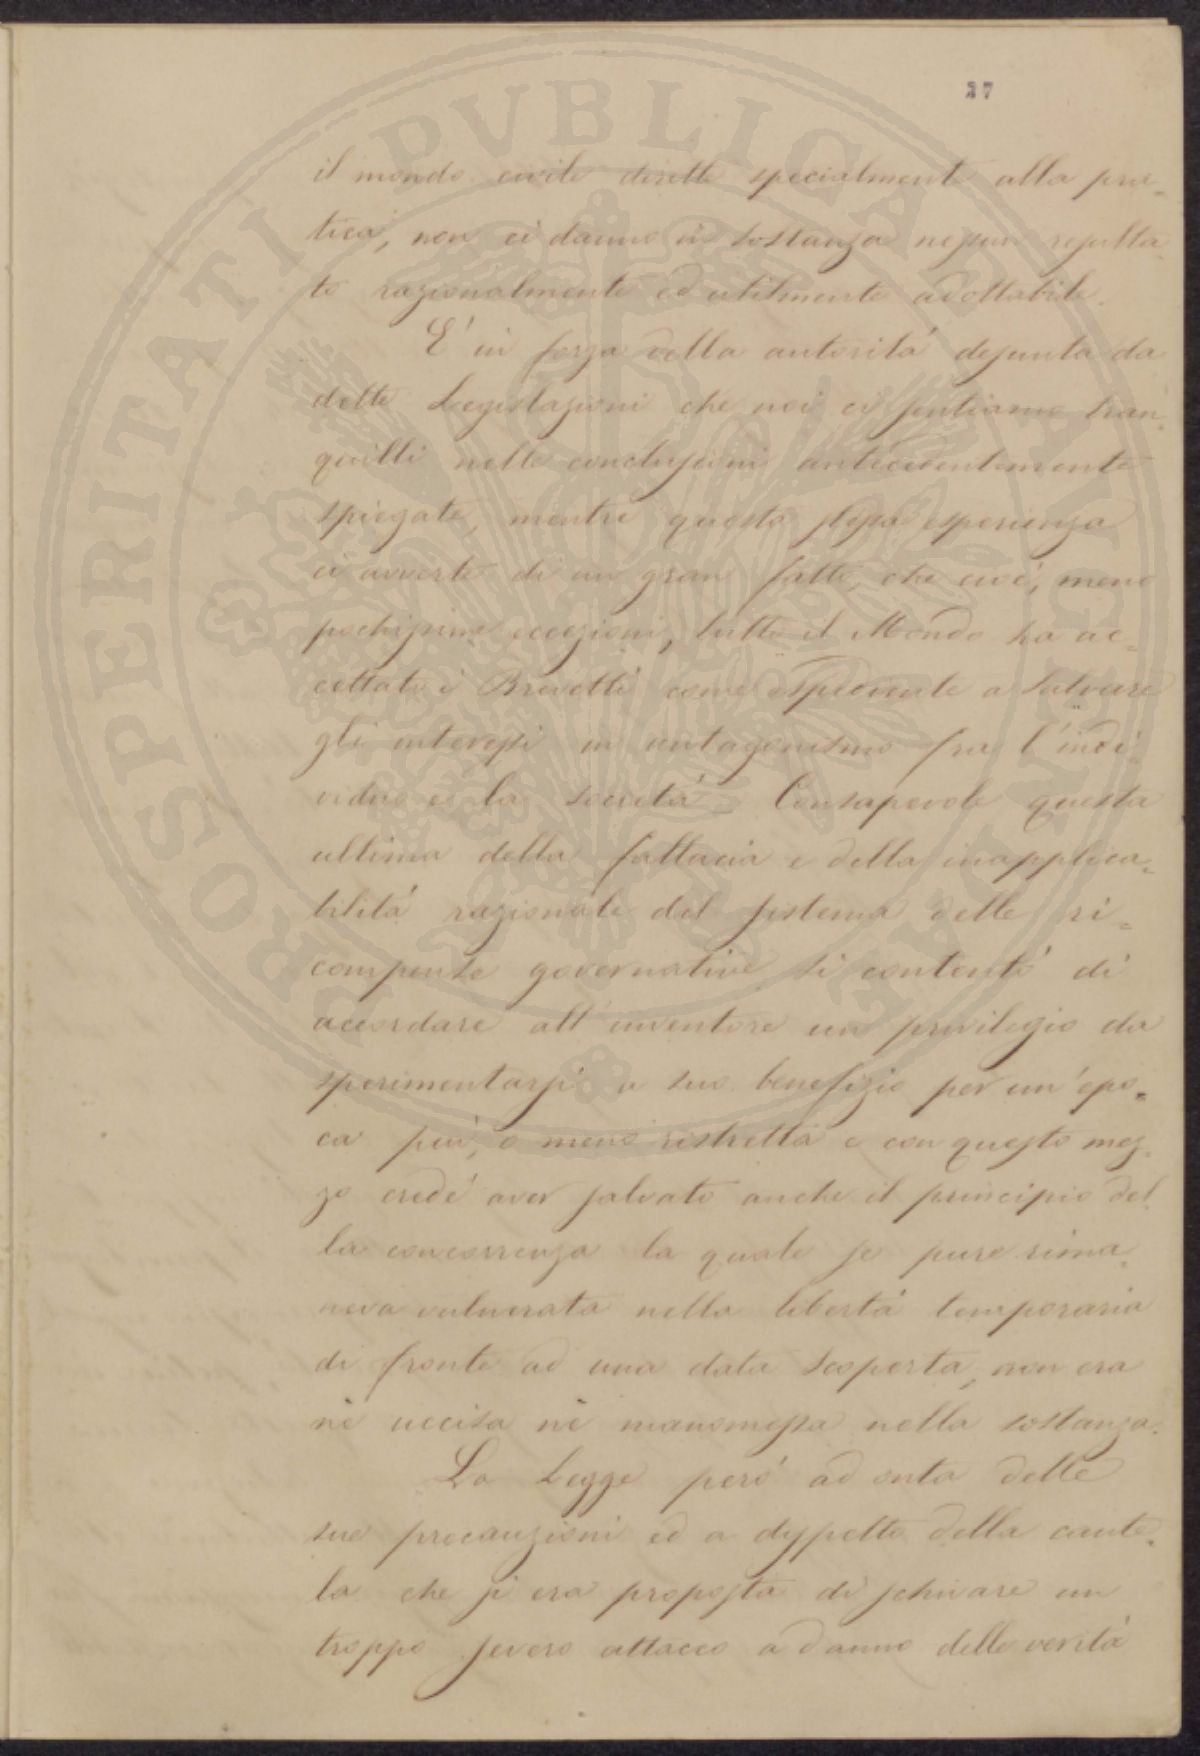 27
il mondo civile dirette specialmente alla pra=
tica, non ci danno in sostanza nessun resulta=
to razionalmente ed utilmente adottabile.
E' in forza della autorità desunta da
dette Legislazioni che noi ci sentiamo tran=
quilli nelle conclusioni antecedentemente
spiegate, mentre questa stessa esperienza
ci avverte di un gran fatto, che cioè, meno
pochissime eccezioni, tutto il Mondo ha ac=
cettato i Brevetti come espediente a salvare
gli interessi in antagonismo fra l'indi=
viduo e la società. Consapevole questa
ultima della fallacia e della inapplica=
bilità razionale del sistema delle ri=
compense governative si contentò di
accordare all'inventore un privilegio da
sperimentarsi a suo benefizio per un'epo=
ca più, o meno ristretta e con questo mez=
zo credè aver salvato anche il principio del
la concorrenza la quale se pure rima=
neva vulnerata nella libertà temporaria
di fronte ad una data scoperta, non era
nè uccisa nè manomessa nella sostanza.
La Legge però ad onta delle
sue precauzioni ed a dispetto della caute=
la che si era proposta di schivare un
troppo severo attacco a danno delle verità
PROSPERITATI PVBLICAE AVGENDAE